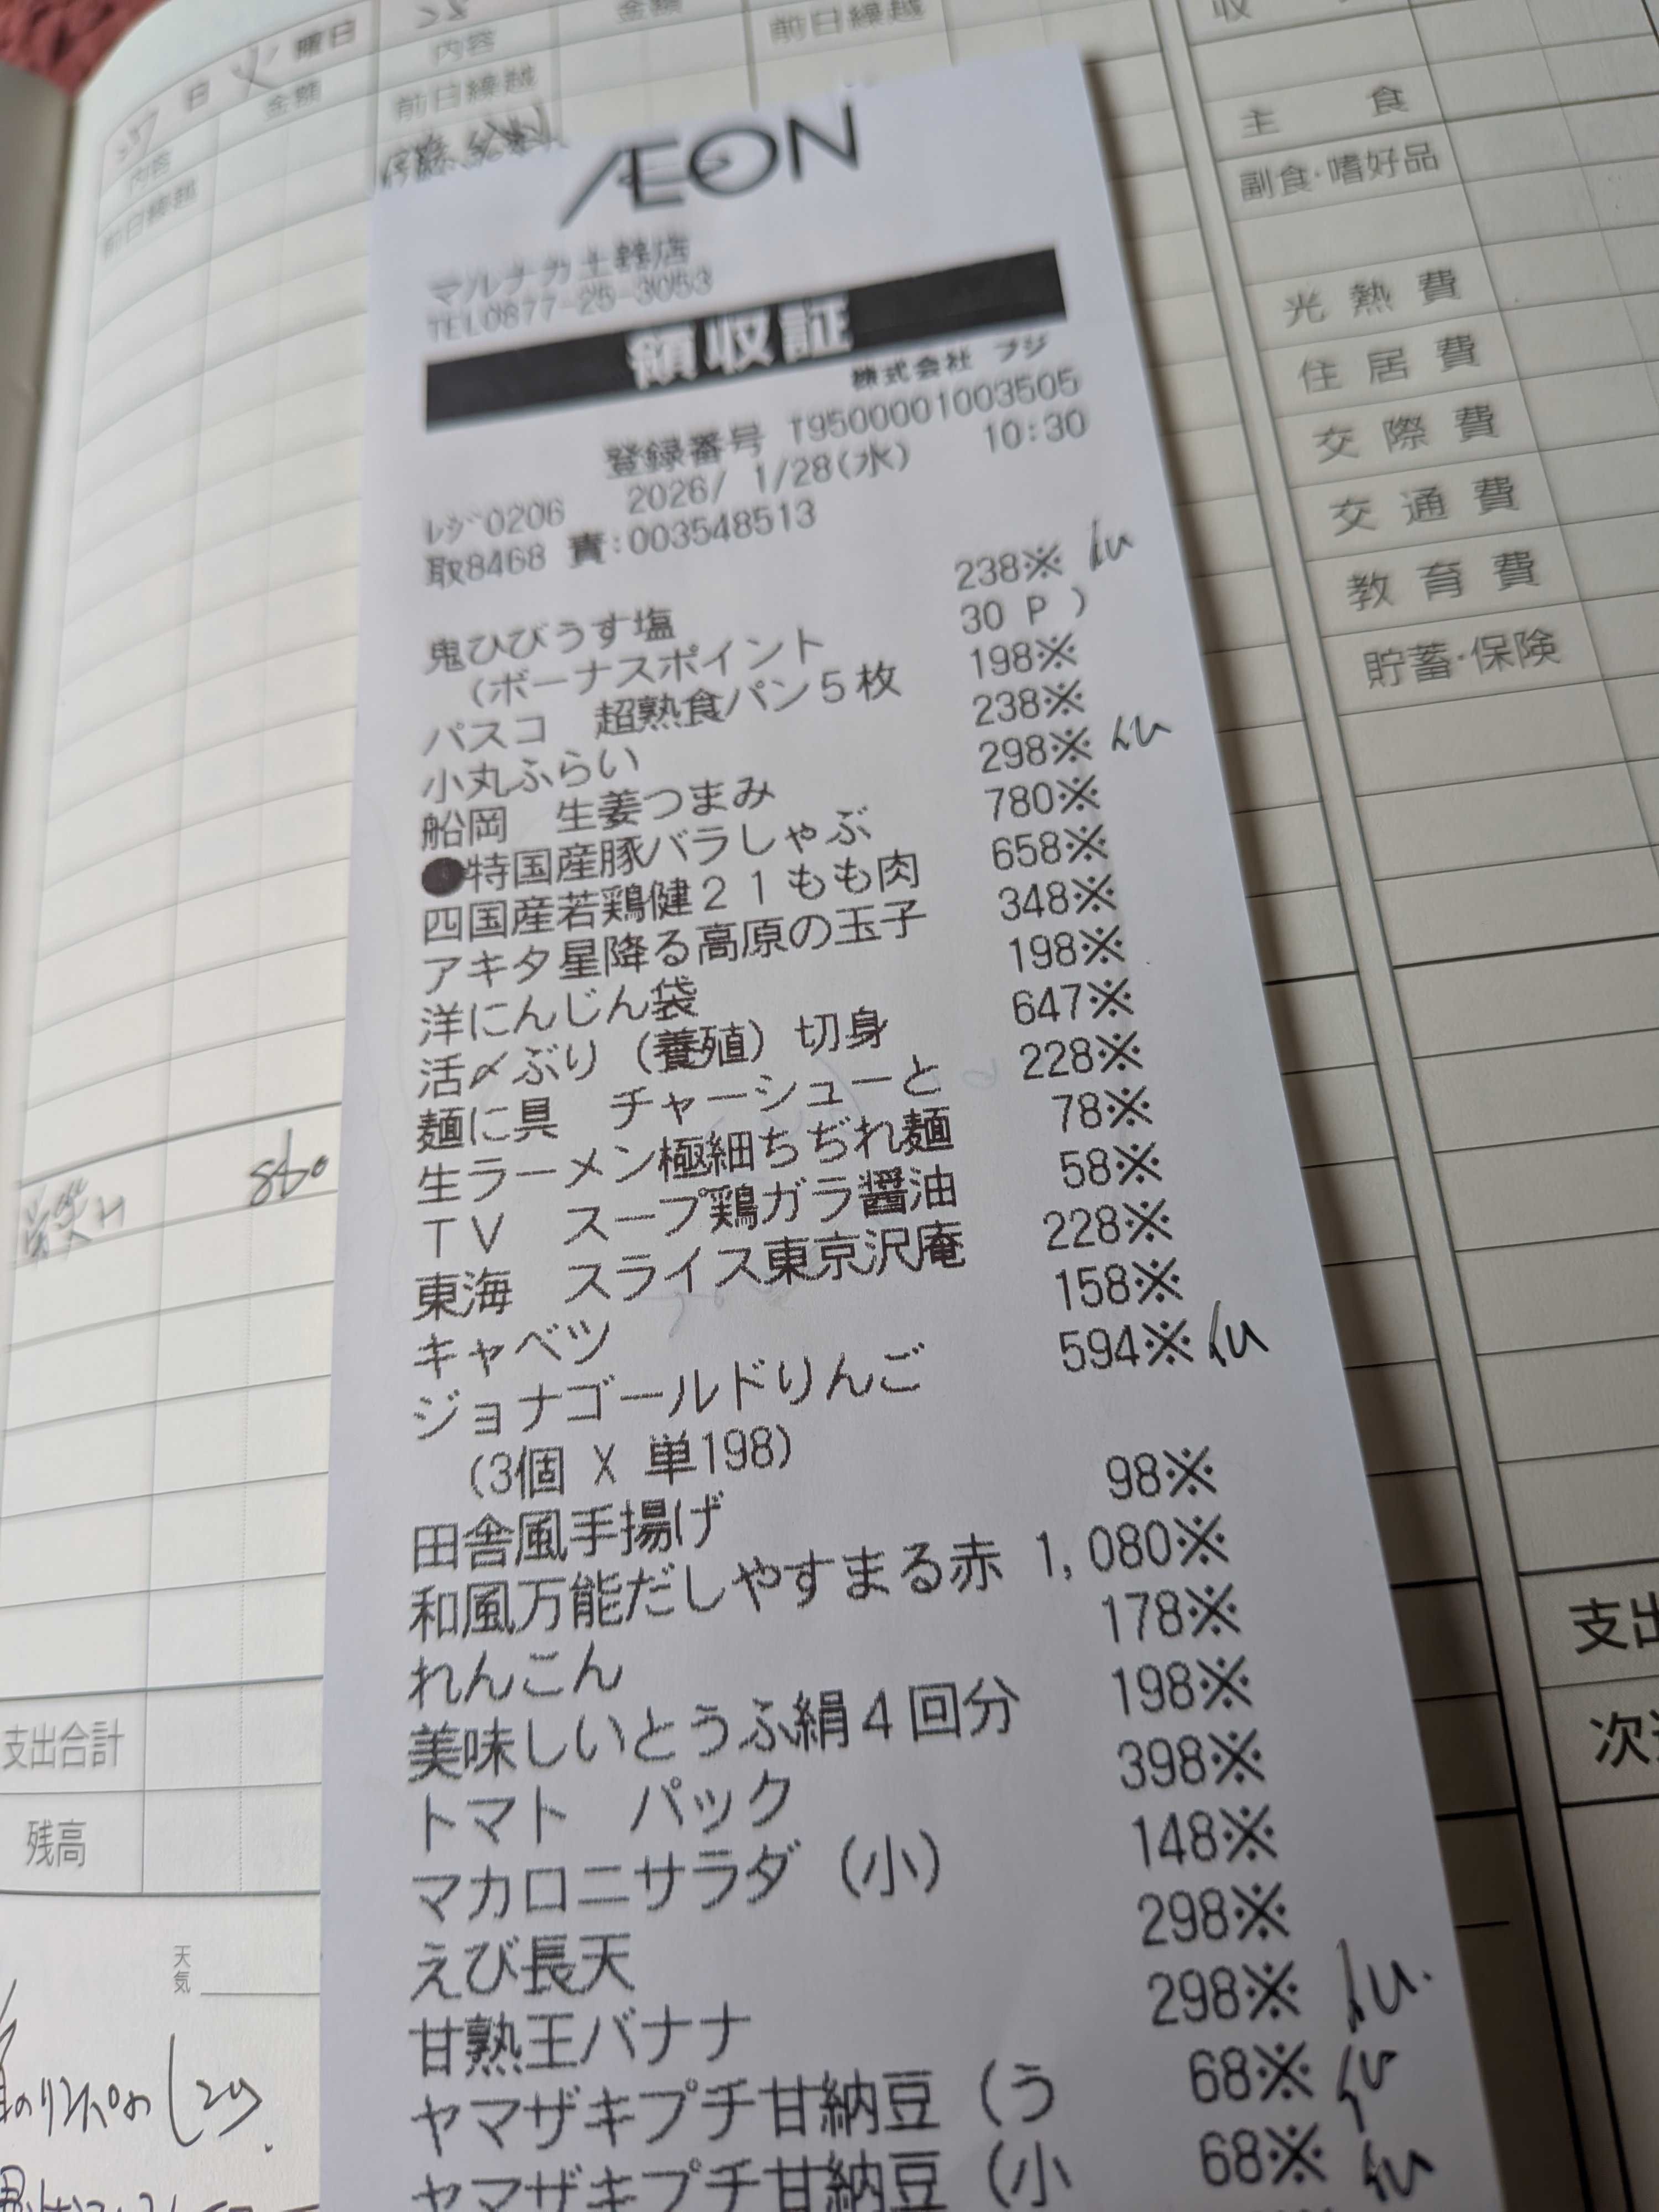 ÆON
マルナカ土器店
TEL0877-25-3053
領収証
株式会社 フジ
登録番号 T9500001003505
レジ0206 2026/ 1/28(水) 10:30
取8468 責:003548513
鬼ひびうす塩 238※
(ボーナスポイント 30 P )
パスコ 超熟食パン5枚 198※
小丸ふらい 238※
船岡 生姜つまみ 298※
●特国産豚バラしゃぶ 780※
四国産若鶏健21もも肉 658※
アキタ星降る高原の玉子 348※
洋にんじん袋 198※
活〆ぶり(養殖)切身 647※
麺に具 チャーシューと 228※
生ラーメン極細ちぢれ麺 78※
TV スープ鶏ガラ醤油 58※
東海 スライス東京沢庵 228※
キャベツ 158※
ジョナゴールドりんご 594※
(3個 X 単198)
田舎風手揚げ 98※
和風万能だしやすまる赤 1,080※
れんこん 178※
美味しいとうふ絹4回分 198※
トマト パック 398※
マカロニサラダ(小) 148※
えび長天 298※
甘熟王バナナ 298※
ヤマザキプチ甘納豆(う 68※
ヤマザキプチ甘納豆(小 68※
27 日 火 曜日
28
内容 金額
前日繰越
内容 金額
前日繰越
前日繰越
860
支出合計
残高
天気
主食
副食・嗜好品
光熱費
住居費
交際費
交通費
教育費
貯蓄・保険
支出